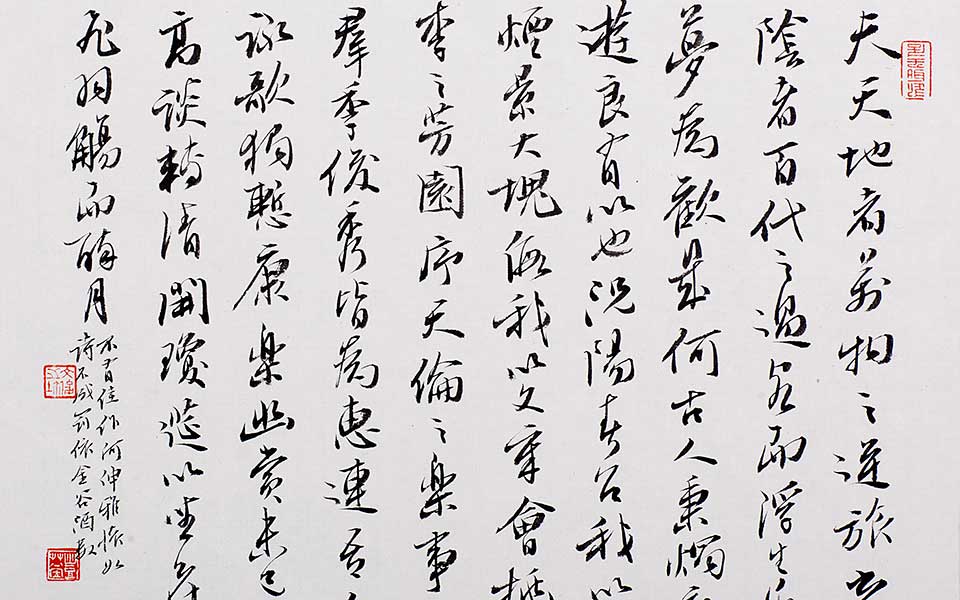 夫天地者萬物之逆旅
陰者百代之過客而浮生
夢為歡幾何古人秉燭
遊良有以也況陽春召我以
煙景大塊假我以文章會桃
李之芳園序天倫之樂事
羣季俊秀皆為惠連吾
詠歌獨慙康樂幽賞未已
高談轉清開瓊筵以坐花
飛羽觴而醉月
不有佳作何伸雅懷如
詩不成罰依金谷酒數